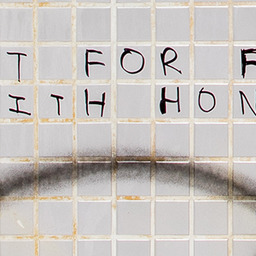 T FOR F
ITH HON